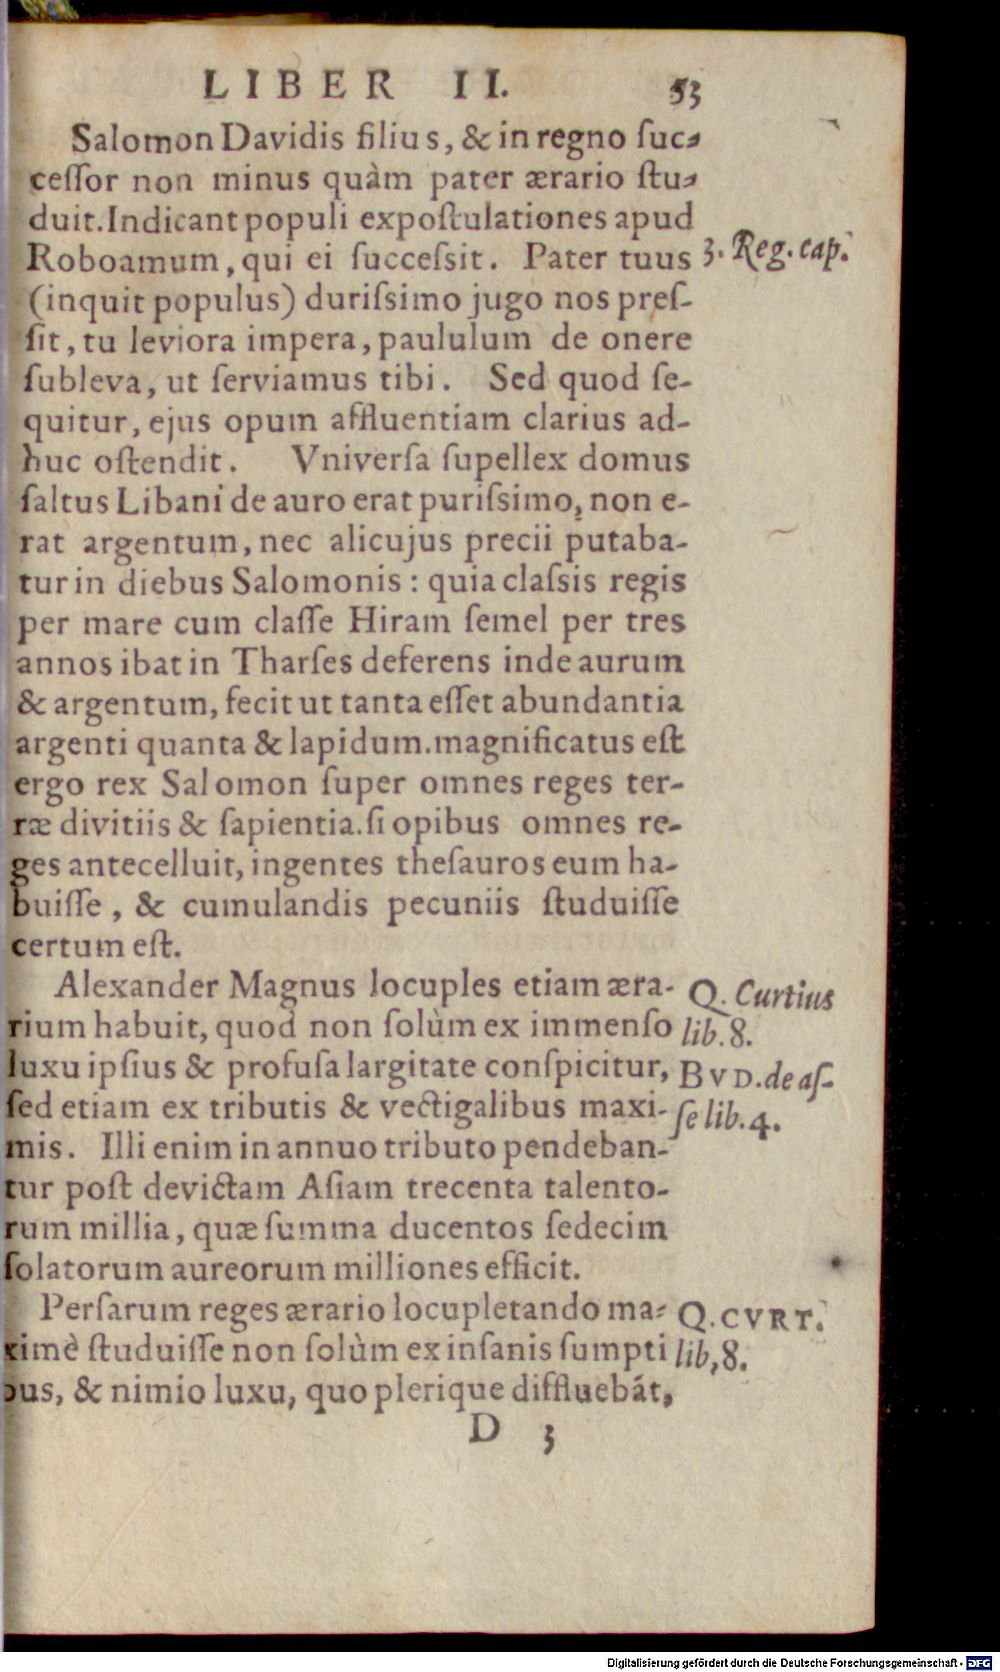 LIBER II. 53
Salomon Davidis filius, & in regno ſuc-
ceſſor non minus quàm pater ærario ſtu-
duit. Indicant populi expoſtulationes apud
Roboamum, qui ei ſucceſsit. Pater tuus
3. Reg. cap.
(inquit populus) duriſsimo jugo nos preſ-
ſit, tu leviora impera, paululum de onere
ſubleva, ut ſerviamus tibi. Sed quod ſe-
quitur, ejus opum affluentiam clarius ad-
huc oſtendit. Vniverſa ſupellex domus
ſaltus Libani de auro erat puriſsimo, non e-
rat argentum, nec alicujus precii putaba-
tur in diebus Salomonis: quia claſsis regis
per mare cum claſſe Hiram ſemel per tres
annos ibat in Tharſes deferens inde aurum
& argentum, fecit ut tanta eſſet abundantia
argenti quanta & lapidum. magnificatus eſt
ergo rex Salomon ſuper omnes reges ter-
ræ divitiis & ſapientia. ſi opibus omnes re-
ges antecelluit, ingentes theſauros eum ha-
buiſſe, & cumulandis pecuniis ſtuduiſſe
certum eſt.
Alexander Magnus locuples etiam æra-
Q. Curtius
rium habuit, quod non ſolùm ex immenſo
lib. 8.
luxu ipſius & profuſa largitate conſpicitur,
BVD. de aſ-
ſed etiam ex tributis & vectigalibus maxi-
ſe lib. 4.
mis. Illi enim in annuo tributo pendeban-
tur poſt devictam Aſiam trecenta talento-
rum millia, quæ ſumma ducentos ſedecim
ſolatorum aureorum milliones efficit.
Perſarum reges ærario locupletando ma-
Q. CVRT.
ximè ſtuduiſſe non ſolùm ex inſanis ſumpti
lib, 8.
bus, & nimio luxu, quo plerique diffluebãt,
D 3
Digitalisierung gefördert durch die Deutsche Forschungsgemeinschaft - DFG